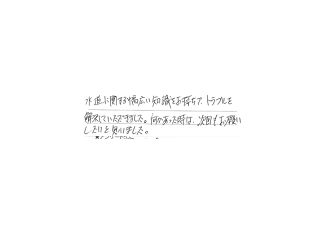 水道に関する幅広い知識をお持ちで、トラブルを
解決していただきました。何かあった時は、次回もお願い
したいと思いました。